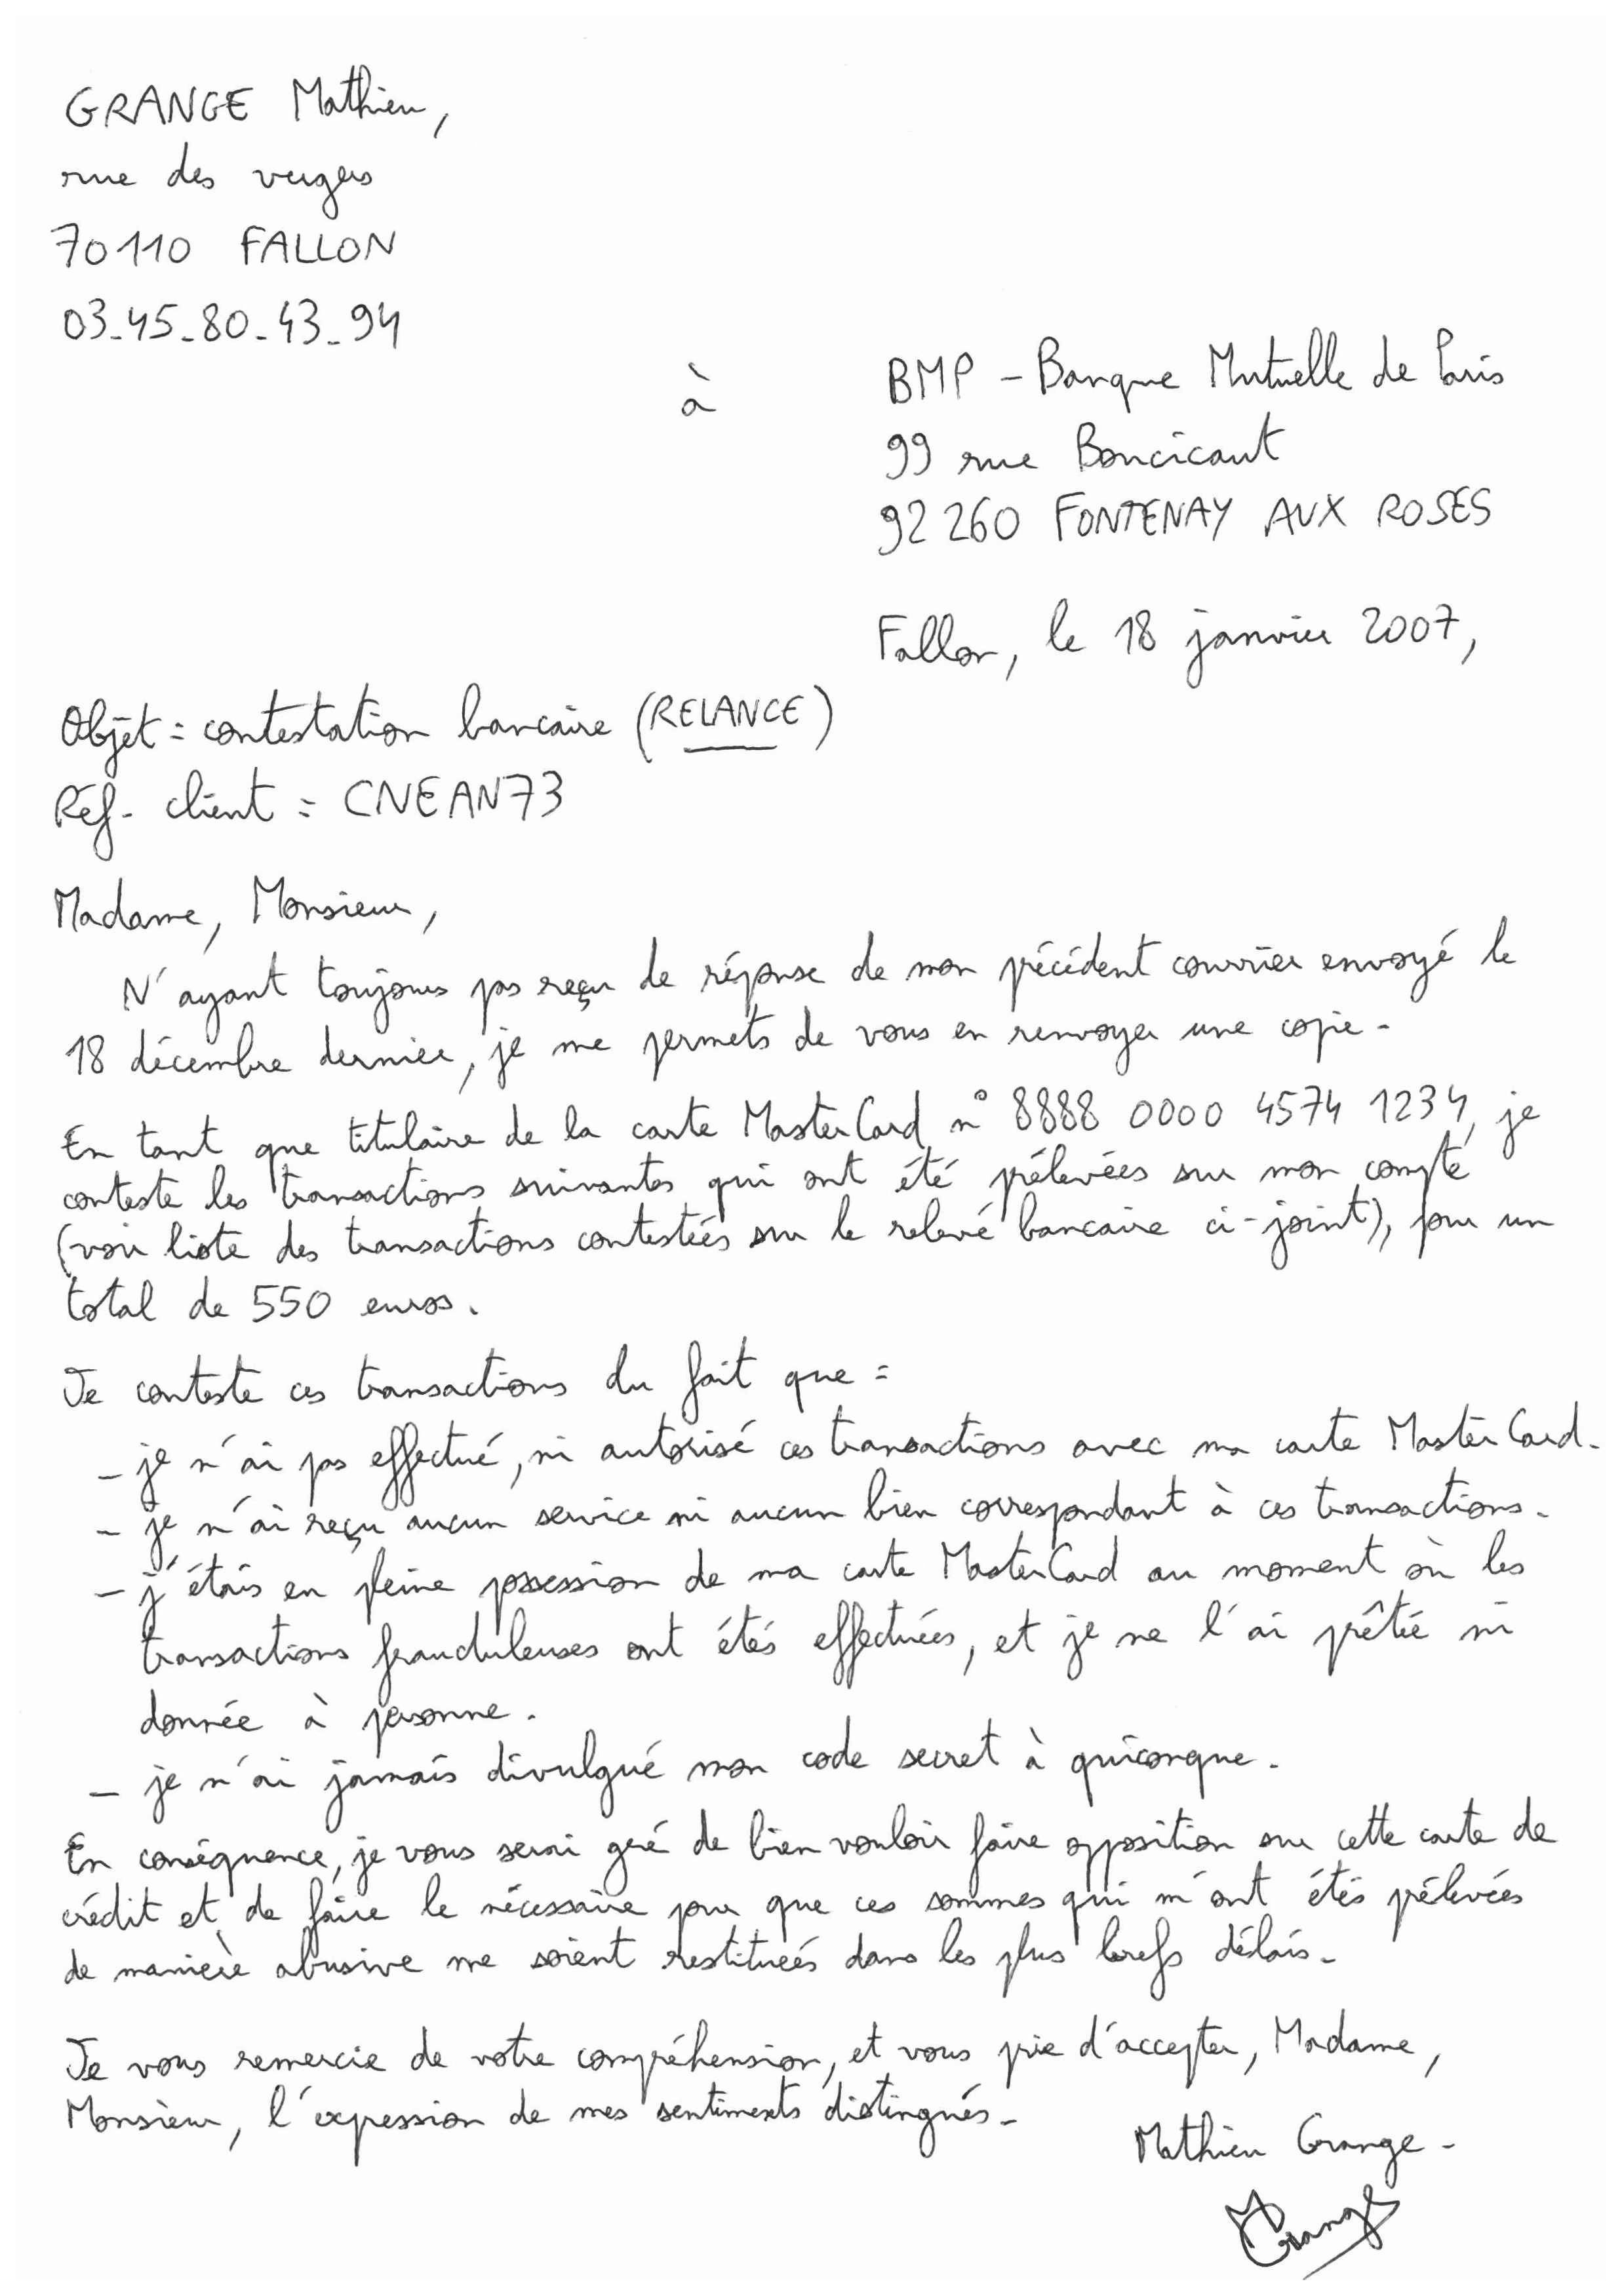 GRANGE Mathieu,
rue des vergers
70110 FALLON
03_45_80_43_94
à
BMP - Banque Mutuelle de Paris
99 rue Boucicaut
92 260 FONTENAY AUX ROSES
Fallon, le 18 janvier 2007,
Objet : contestation bancaire (RELANCE)
Réf. client : CNEAN73
Madame, Monsieur,
N'ayant toujours pas reçu de réponse de mon précédent courrier envoyé le
18 décembre dernier, je me permets de vous en renvoyer une copie.
En tant que titulaire de la carte MasterCard n° 8888 0000 4574 1234, je
conteste les transactions suivantes qui ont été prélevées sur mon compte
(voir liste des transactions contestées sur le relevé bancaire ci-joint), pour un
total de 550 euros.
Je conteste ces transactions du fait que :
- je n'ai pas effectué, ni autorisé ces transactions avec ma carte MasterCard.
- je n'ai reçu aucun service ni aucun bien correspondant à ces transactions.
- j'étais en pleine possession de ma carte MasterCard au moment où les
transactions frauduleuses ont étés effectuées, et je ne l'ai prêtée ni
donnée à personne.
- je n'ai jamais divulgué mon code secret à quiconque.
En conséquence, je vous serai gré de bien vouloir faire opposition sur cette carte de
crédit et de faire le nécessaire pour que ces sommes qui m'ont étés prélevées
de manière abusive me soient restituées dans les plus brefs délais.
Je vous remercie de votre compréhension, et vous prie d'accepter, Madame,
Monsieur, l'expression de mes sentiments distingués.
Mathieu Grange.
MGrange